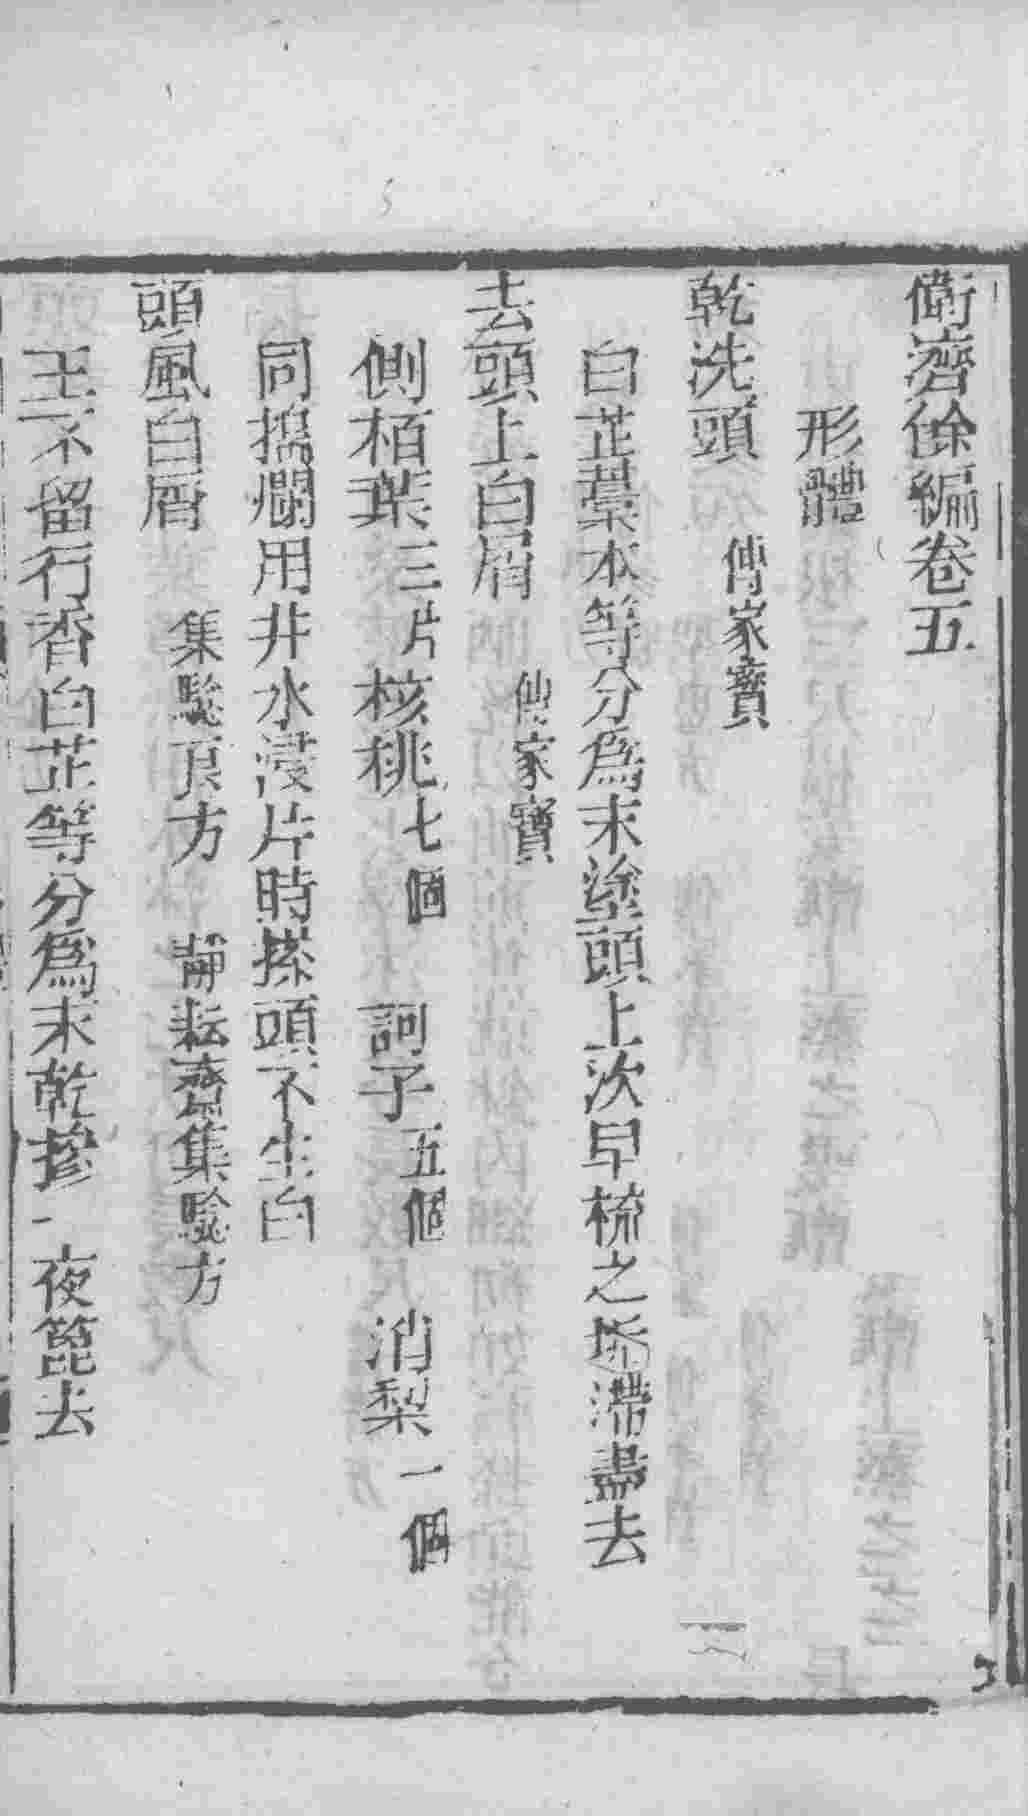 衛濟餘編卷五
形體
乾洗頭 傳家寶
白芷藁本等分為末塗頭上次早梳之垢滯盡去
去頭上白屑 傳家寶
側栢葉三片核桃七個 訶子五個 消梨一個
同搗爛用井水浸片時搽頭不生白
頭風白屑 集騐良方 靜耘齋集騐方
王不留行香白芷等分為末乾摻一夜篦去